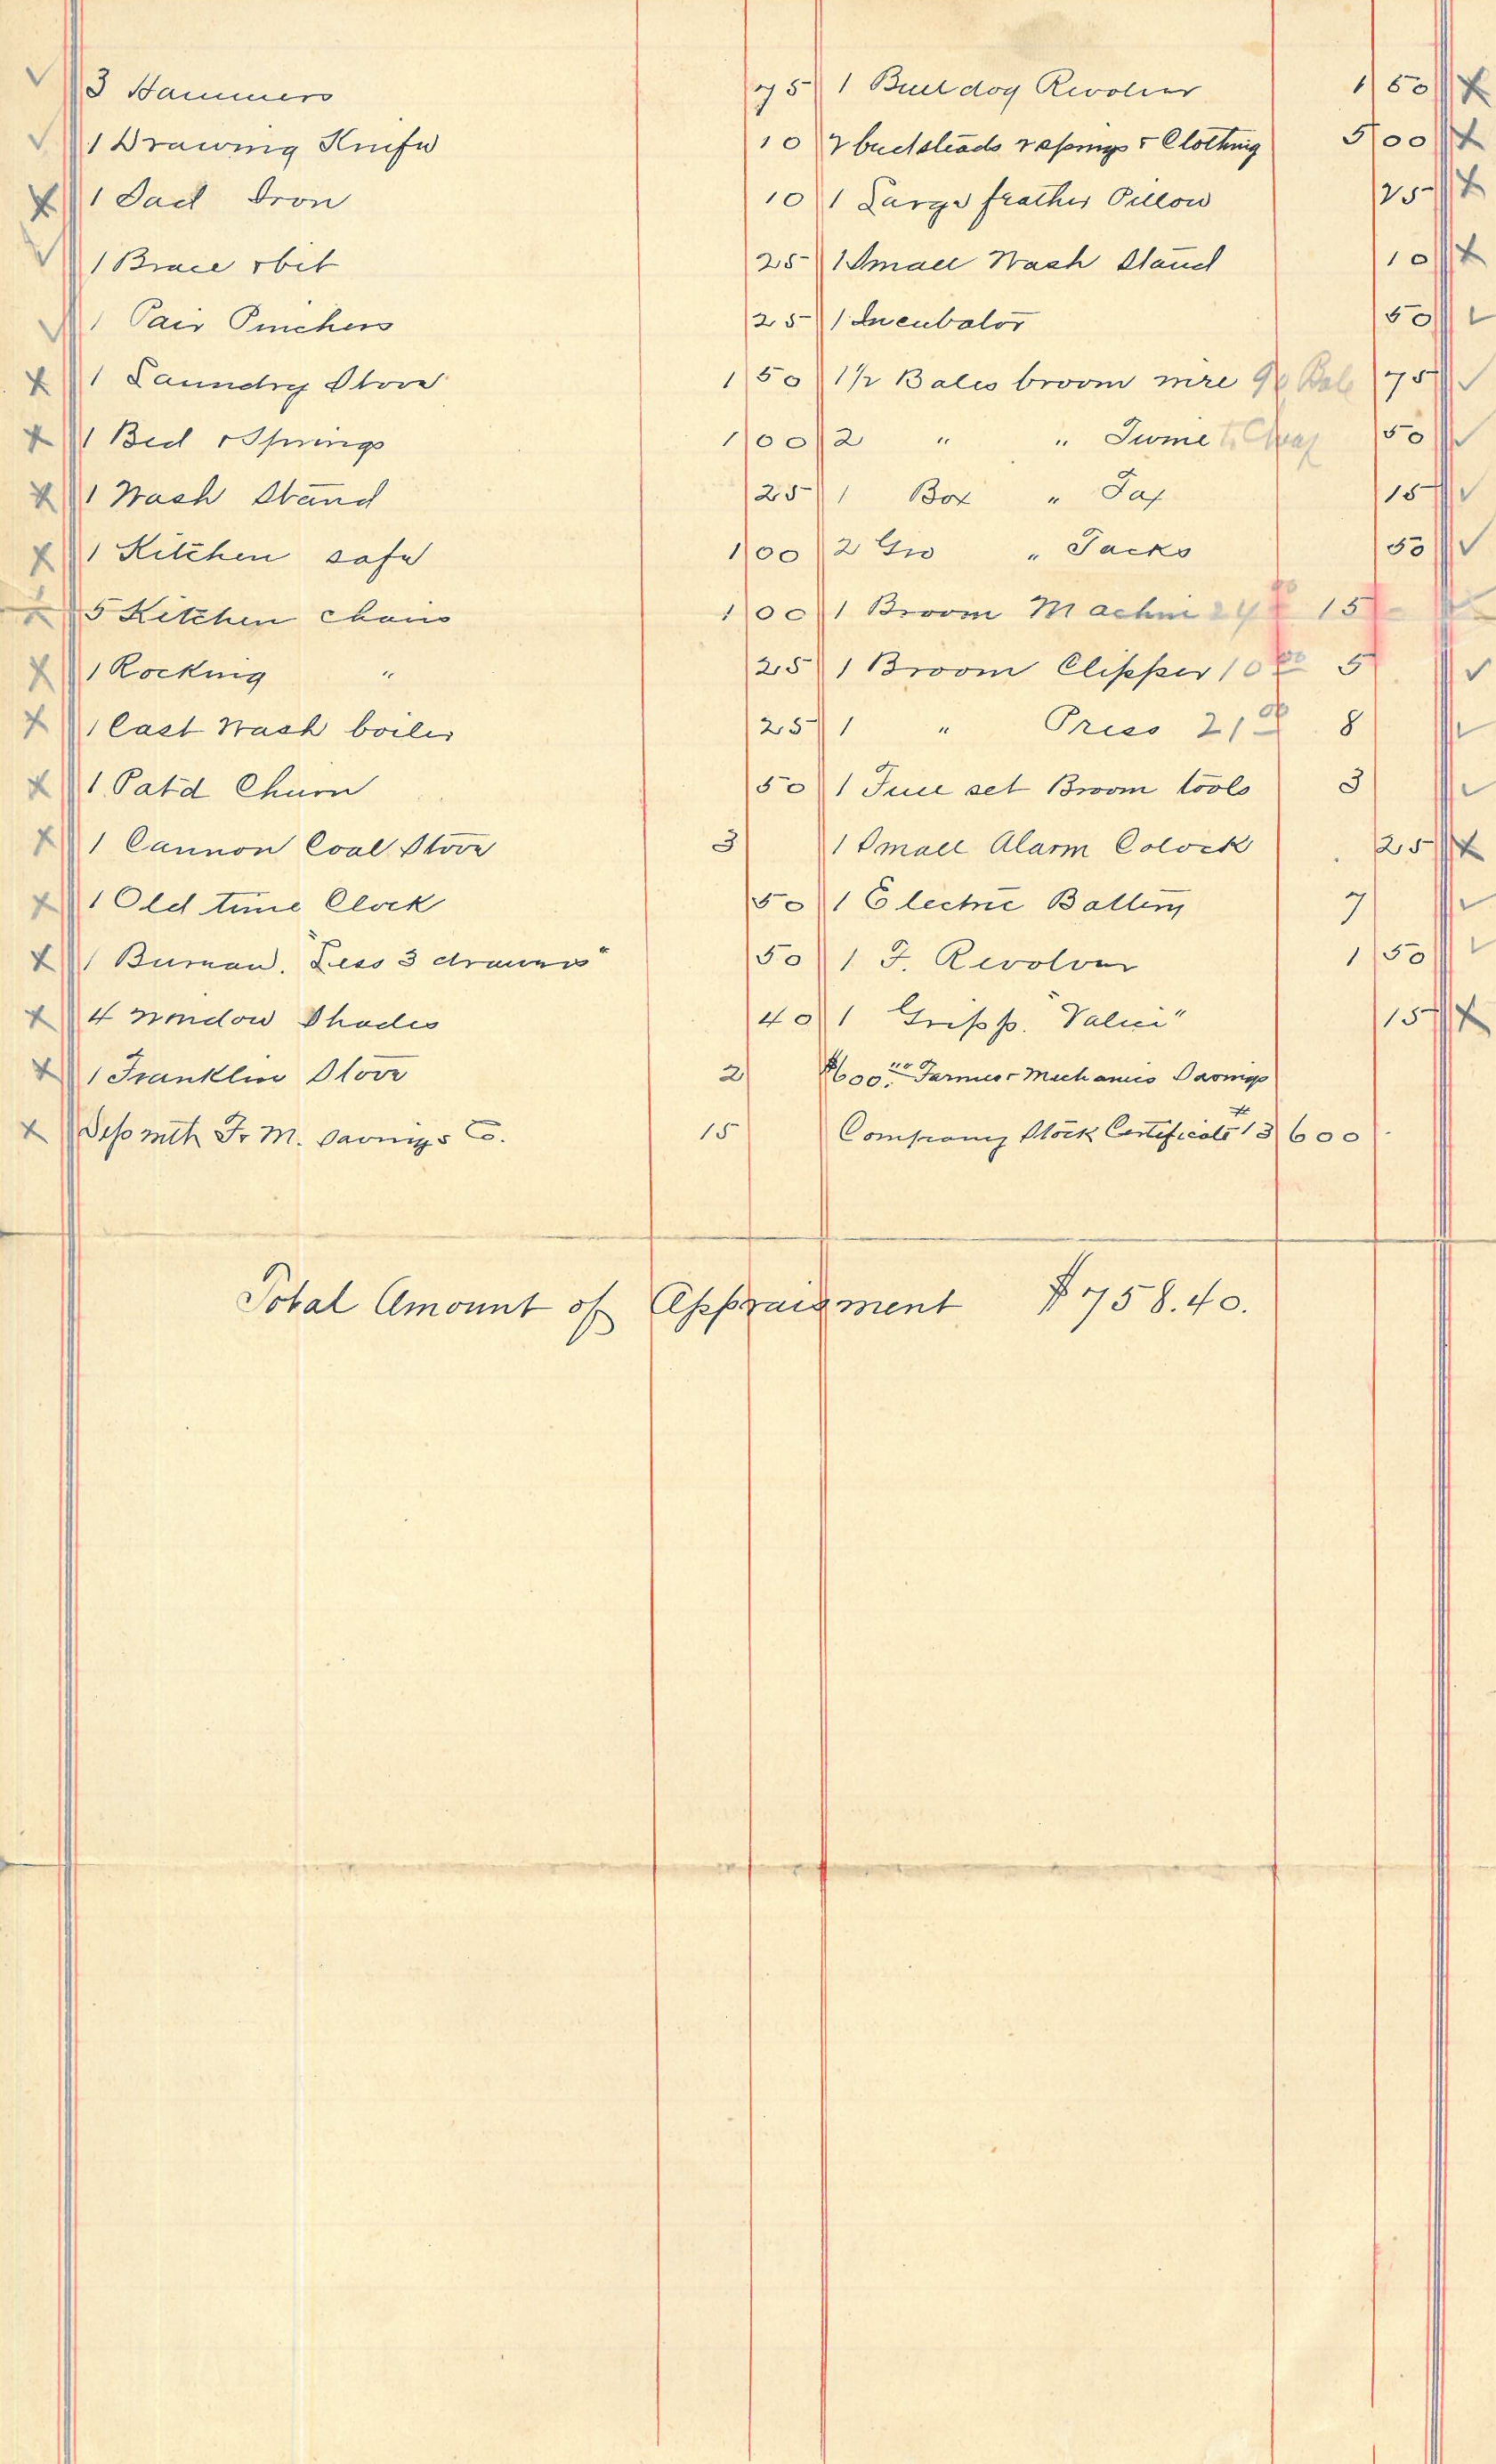 3 Hammers 75
1 Drawing Knife 10
1 Sad Iron 10
1 Brace & bit 25
1 Pair Pinchers 25
1 Laundry Stove 1 50
1 Bed & Springs 1 00
1 Wash Stand 25
1 Kitchen safe 1 00
5 Kitchen chairs 1 00
1 Rocking " 25
1 Cast Wash boiler 25
1 Patd Churn 50
1 Cannon Coal Stove 3
1 Old time Clock 50
1 Bureau. "Less 3 drawers" 50
4 Window Shades 40
1 Franklin Stove 2
Dep with F. M. Savings Co. 15
1 Bull dog Revolver 1 50
2 bedsteads springs & Clothing 5 00
1 Large feather Pillow 25
1 Small Wash Stand 10
1 Incubator 50
1 1/2 Bales broom wire 75
2 " " Twine 50
1 Box " 15
2 Gro " Tacks 50
1 Broom Machin 24 15
1 Broom Clipper 10 00 5
1 " Press 21 00 8
1 Full set Broom tools 3
1 Small Alarm Colock 25
1 Electric Battery 7
1 F. Revolver 1 50
1 Gripp. "Valice" 15
$600.00 Farmers & Mechanics Savings
Company Stock Certificate # 13 600
Total Amount of Appraisment $758.40.